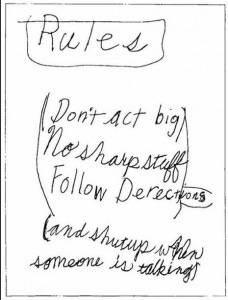 Rules
(Don't act big)
No sharp stuff
Follow Derections
(and shutup when
someone is talking)